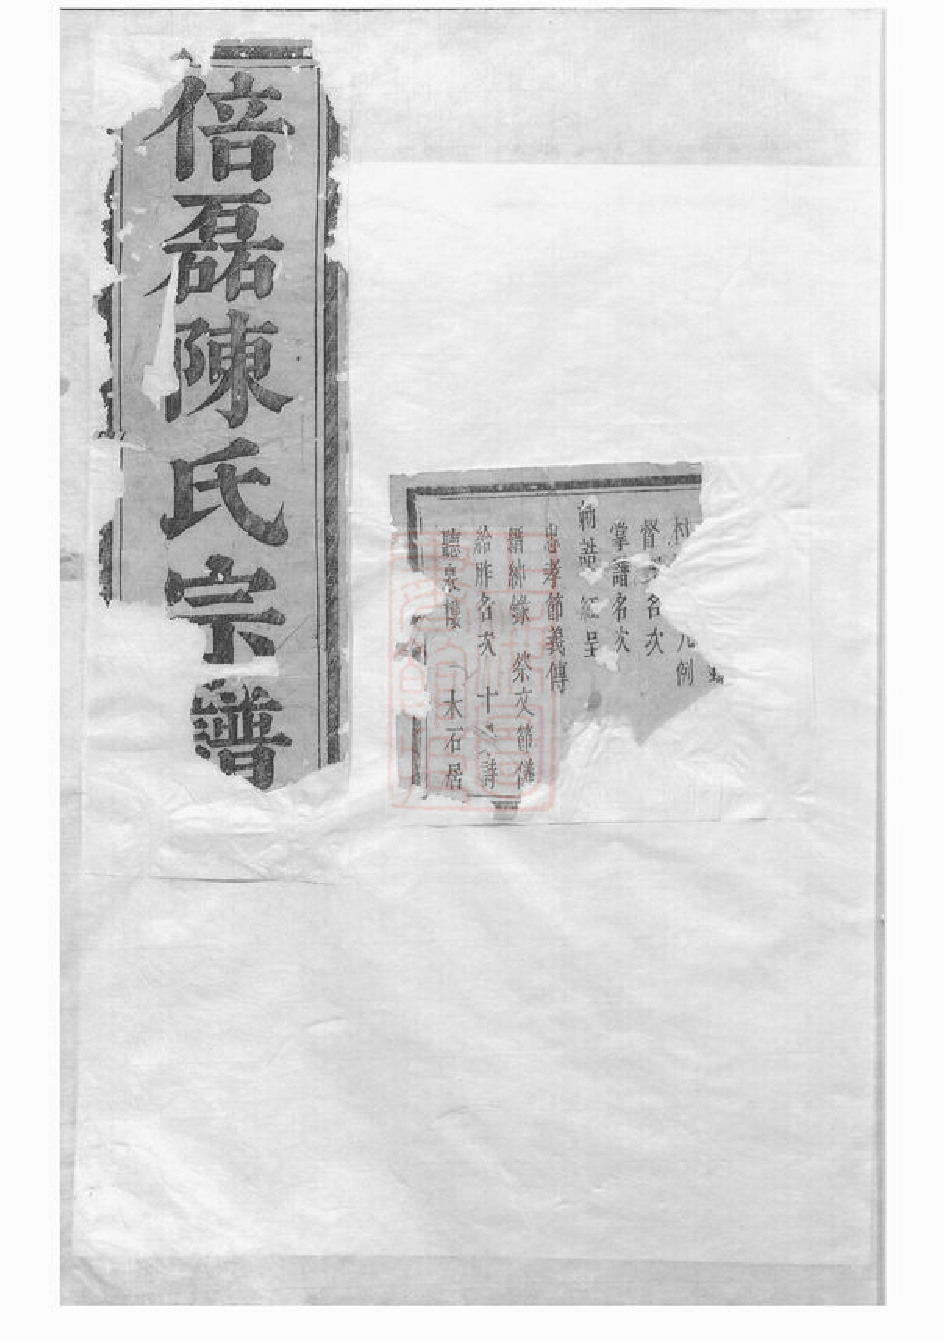 倍磊陳氏宗譜
凡例
督 名次
掌譜名次
誥 紅呈
忠孝節義傳
縉紳錄 祭文節儀
給胙名次 十 詩
聽泉樓 木石居